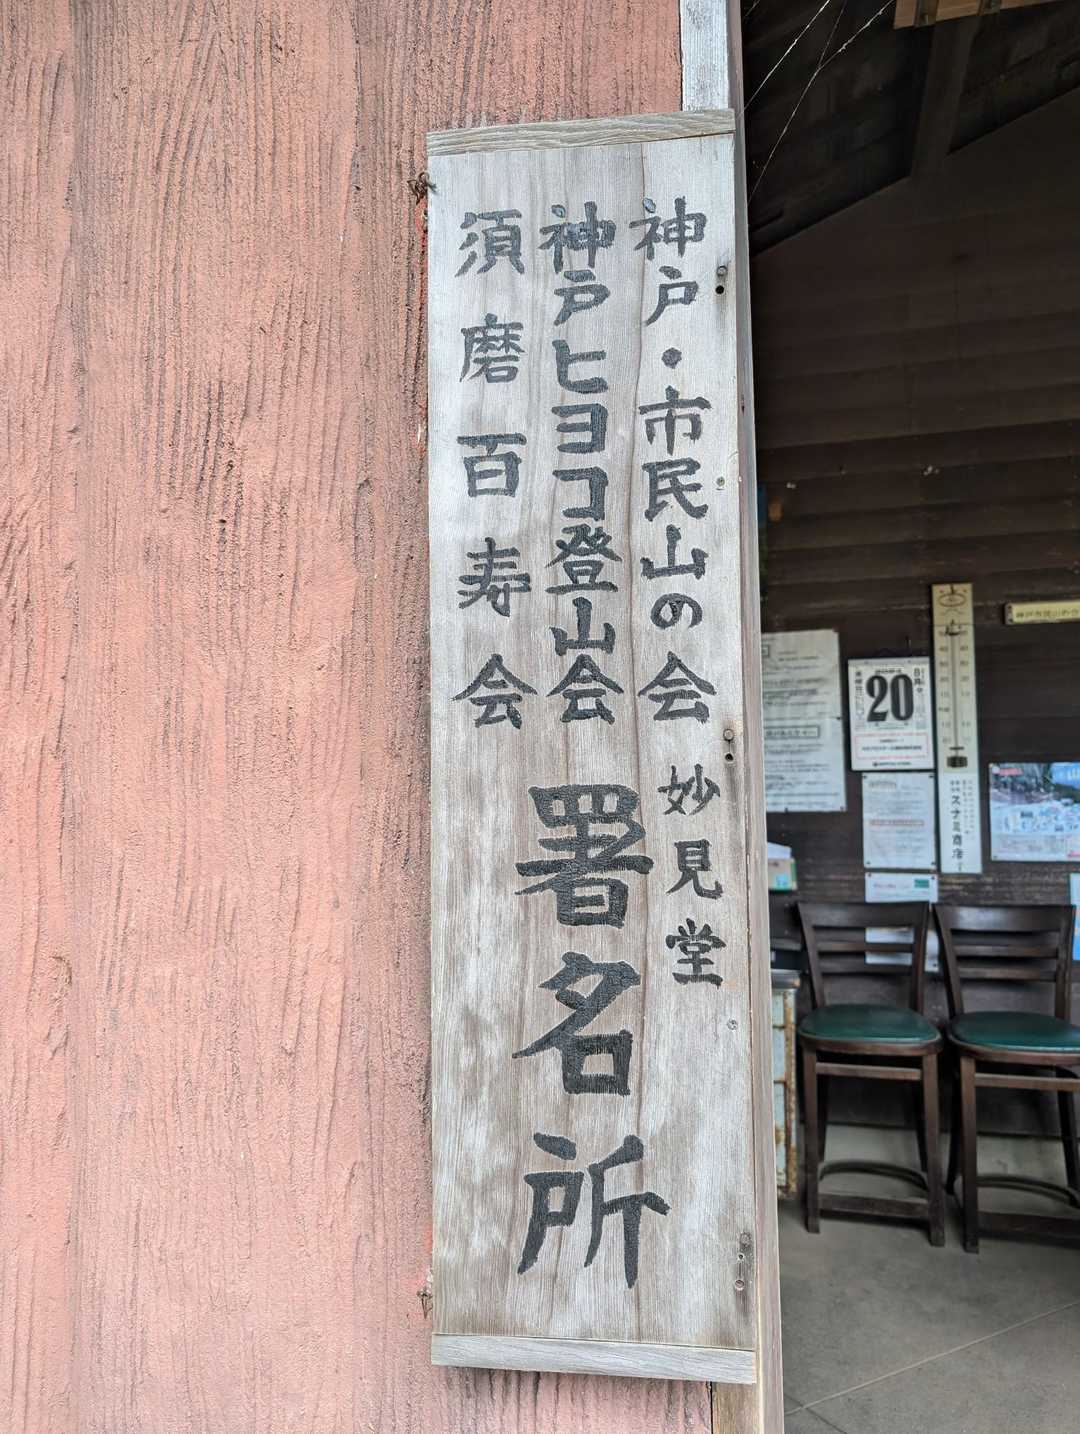 神戸・市民山の会 妙見堂
神戸ヒヨコ登山会
須磨百寿会
署名所
20
スナミ商店